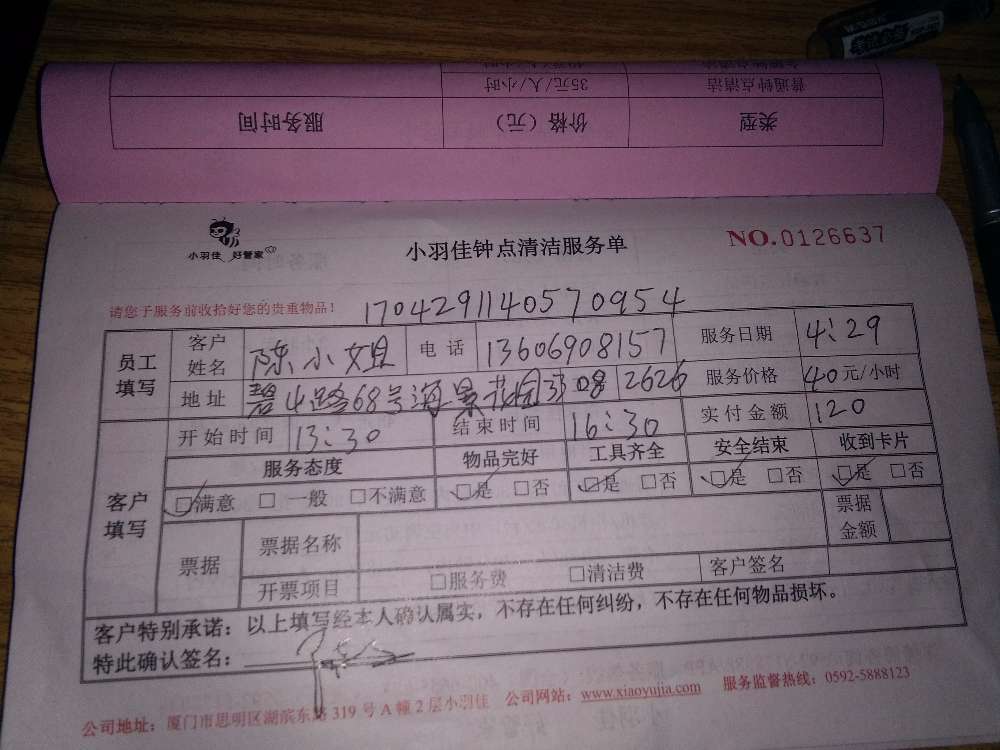 普通钟点清洁 35元/人/小时
类型 价格（元） 服务时间
小羽佳 好管家
小羽佳钟点清洁服务单
NO.0126637
请您于服务前收拾好您的贵重物品！ 1704291140570954
员工填写 客户姓名 陈小姐 电话 13606908157 服务日期 4:29
地址 碧山路68号海景花园 08 2626 服务价格 40元/小时
客户填写 开始时间 13:30 结束时间 16:30 实付金额 120
服务态度 物品完好 工具齐全 安全结束 收到卡片
☑满意 □一般 □不满意 ☑是 □否 ☑是 □否 ☑是 □否 ☑是 □否
票据 票据名称 票据金额
开票项目 □服务费 □清洁费 客户签名
客户特别承诺：以上填写经本人确认属实，不存在任何纠纷，不存在任何物品损坏。
特此确认签名：
公司地址：厦门市思明区湖滨东路319号A幢2层小羽佳 公司网站：www.xiaoyujia.com 服务监督热线：0592-5888123